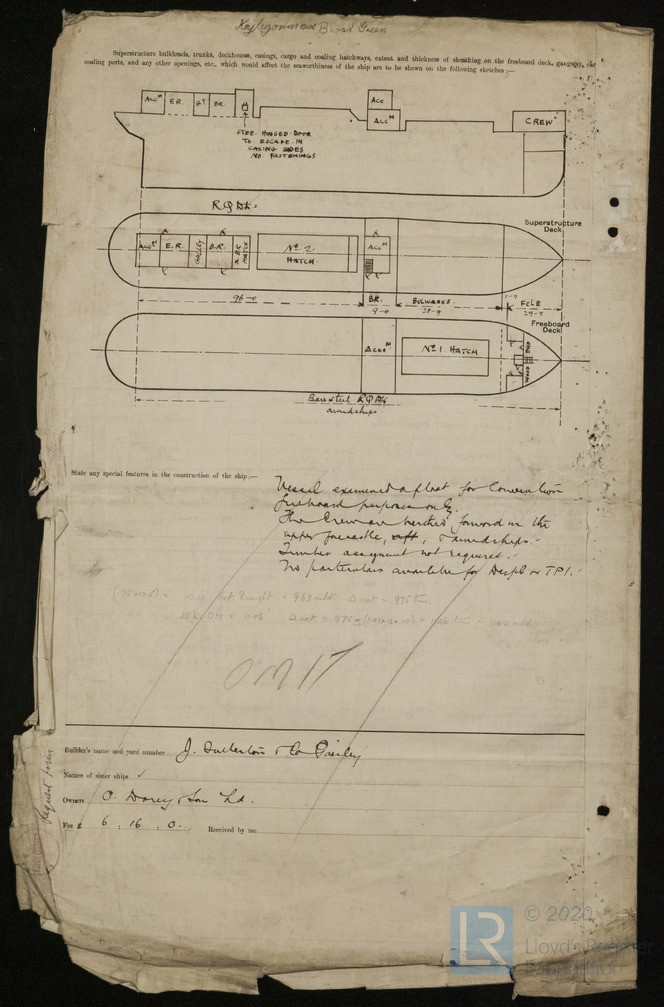 Broad Green
Superstructure bulkheads, trunks, deckhouses, casings, cargo and coaling hatchways, extent and thickness of sheathing on the freeboard deck, gangway,
coaling ports, and any other openings, etc., which would affect the seaworthiness of the ship are to be shown on the following sketches:—
Accᴹ E.R. GY BR.
Acc
Accᴹ
CREW
STEEL HINGED DOOR
TO ESCAPE IN
CASING SIDES
NO FASTENINGS
R Q Dk:
Superstructure
Deck
Accᴹ E.R. GALLEY B.R. X BR HATCH
Nº 2
HATCH
Accᴹ
96-0
BR.
9-0
BULWARKS
38-9
1-9
FCLE
29-9
Freeboard
Deck
Accᴹ
Nº 1 HATCH
WOOD
amidships
State any special features in the construction of the ship:—
Vessel examined afloat for Convention
freeboard purposes only.
The Crew are berthed forward in the
upper forecastle, aft, & amidships.
Timber assignment not required.
No particulars available for Displ or TPI.
Builder's name and yard number J. Fullerton & Co Paisley
Names of sister ships ✓
Owners O. Dorey & Son Ld.
Fee £ 6 . 16 . 0. Received by me
Request form
LR
© 2020
Lloyd's Register
Foundation